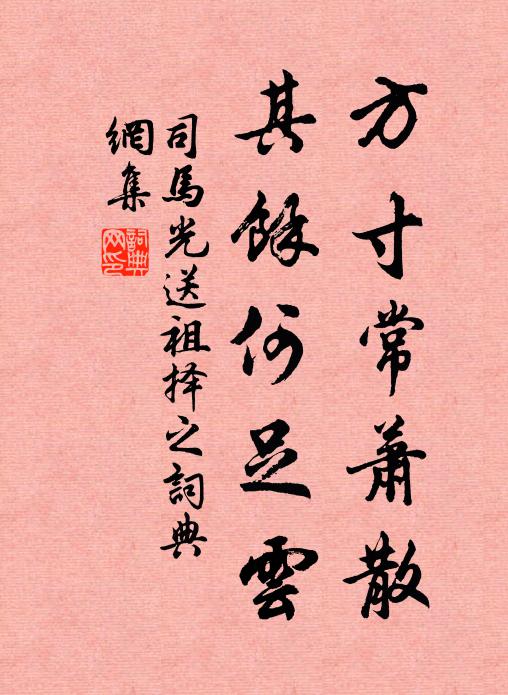 方寸常蕭散
其餘何足雲
司馬光送祖择之詞典
網集
詞典網印